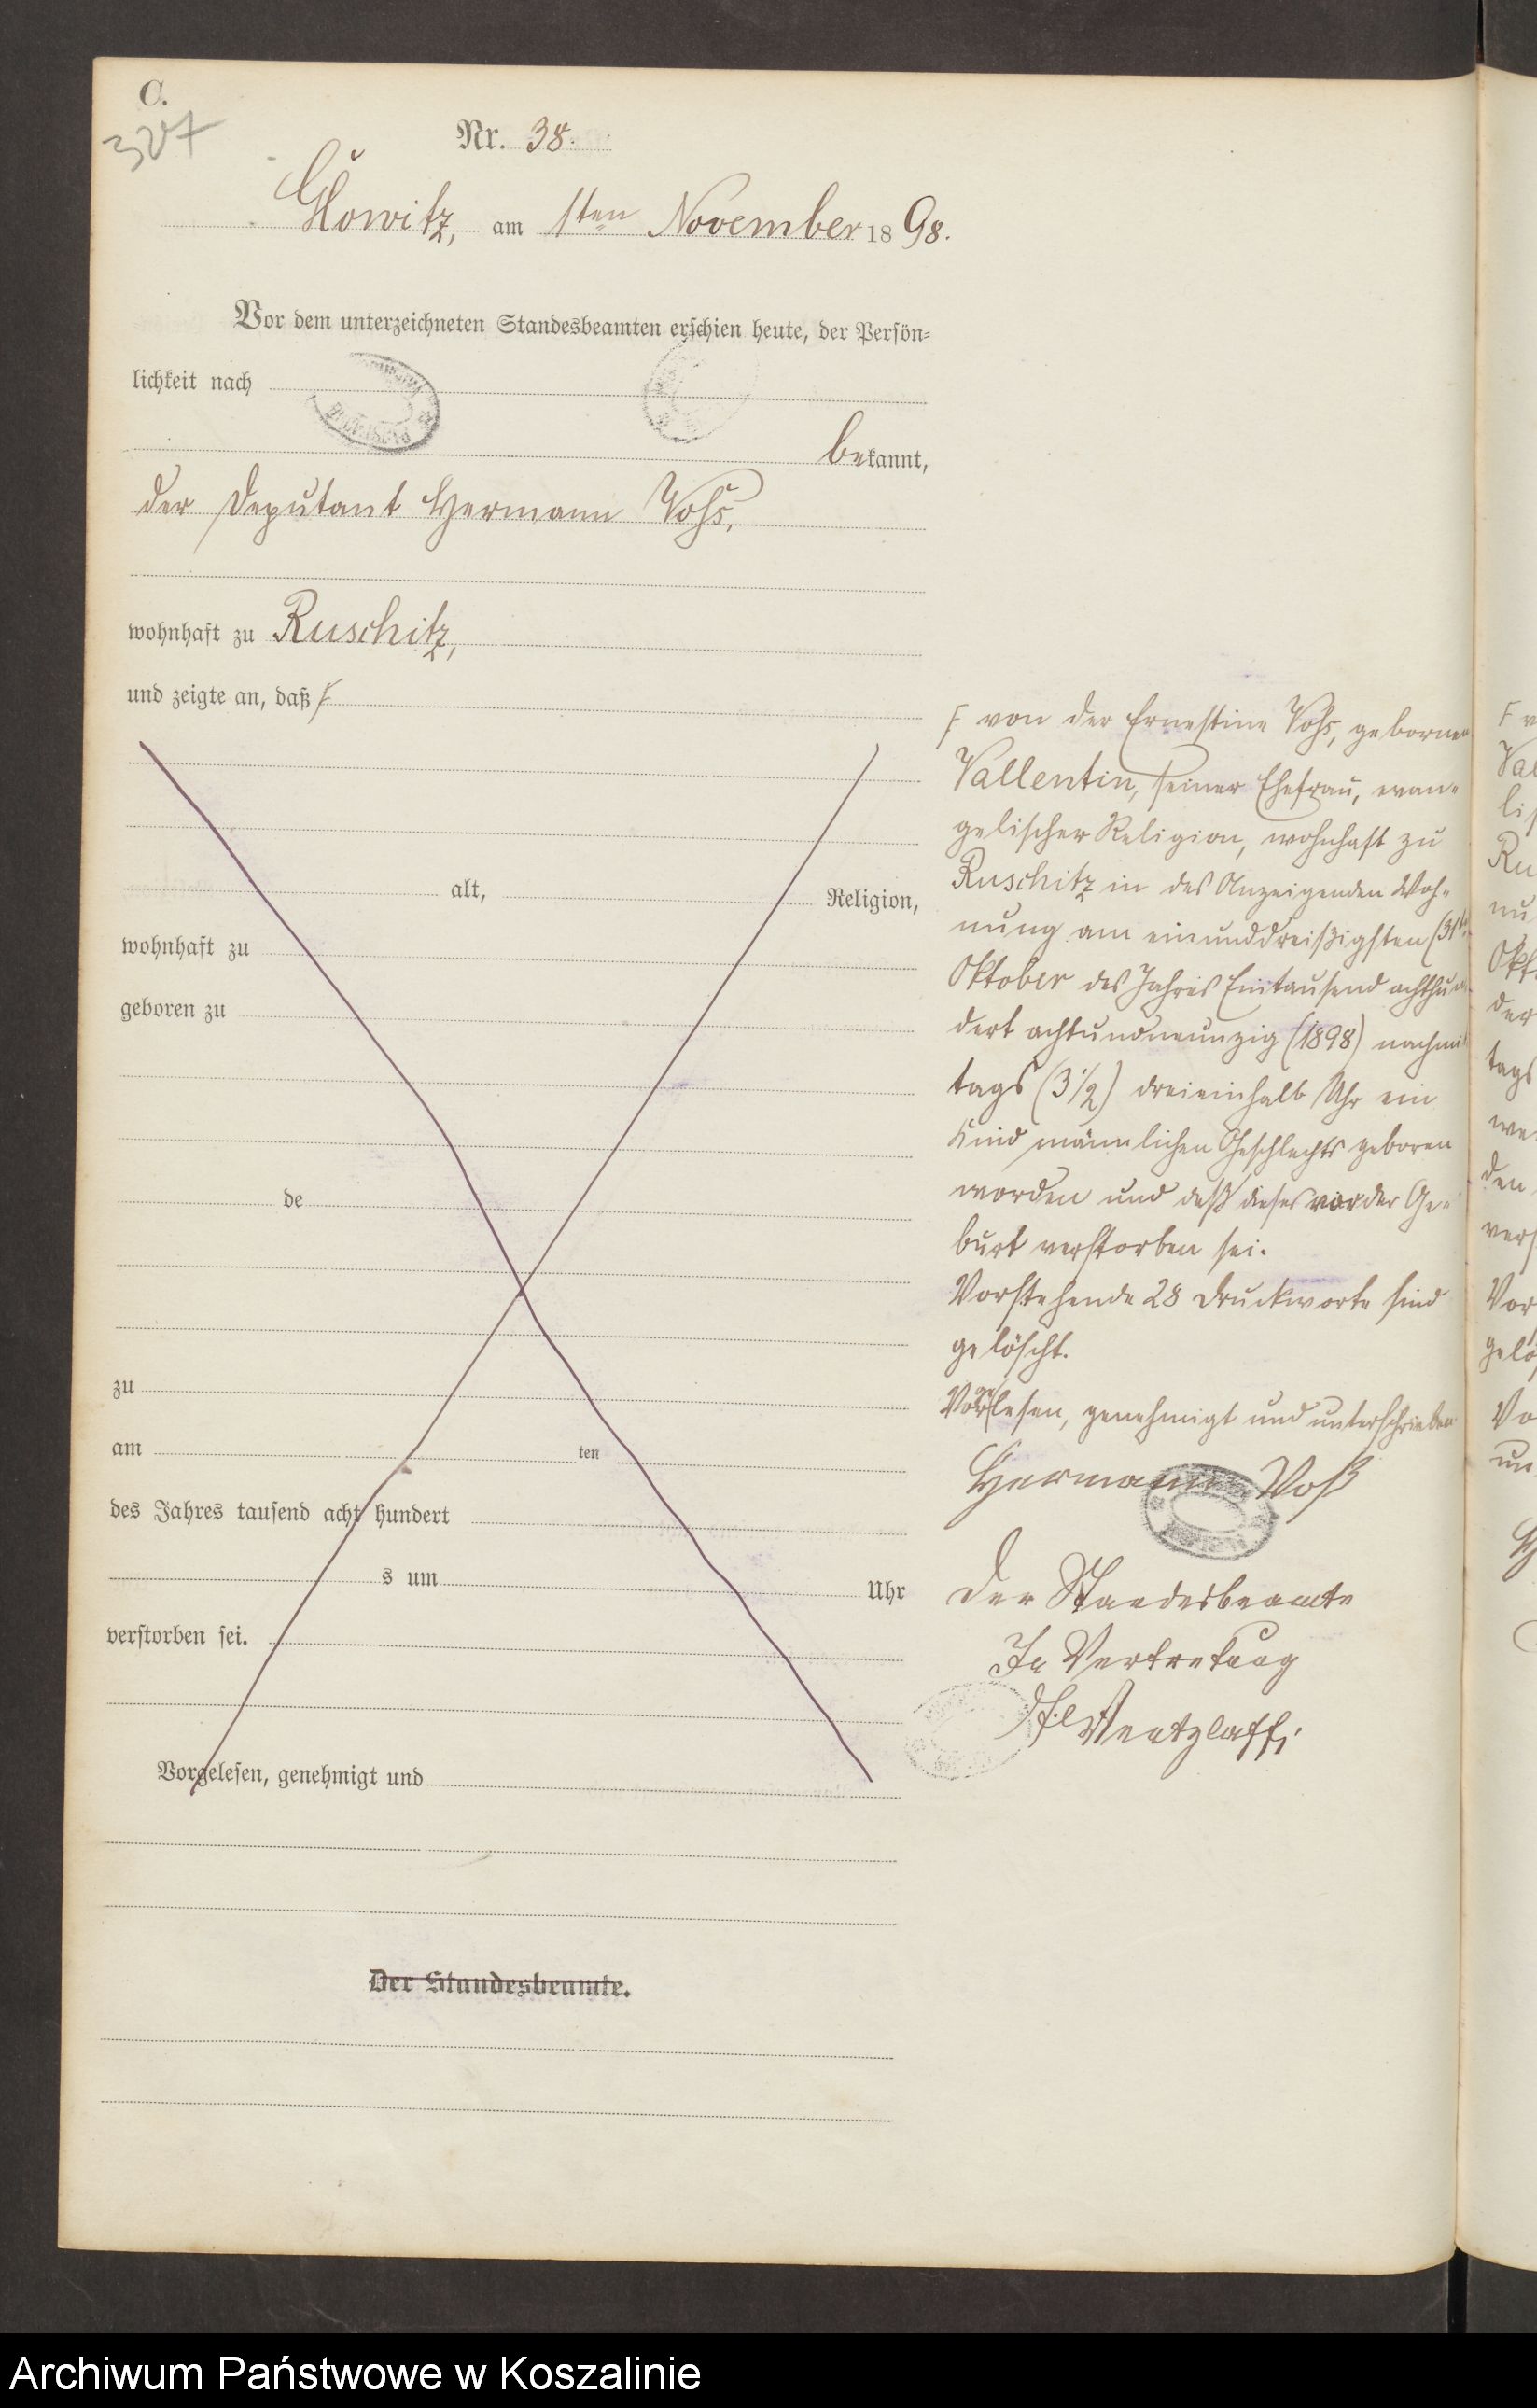 C.
327
Nr. 38.
Glowitz, am 1ten November 1898.
Vor dem unterzeichneten Standesbeamten erschien heute, der Persön=
lichkeit nach
bekannt,
der Deputant Hermann Vohs,
wohnhaft zu Ruschitz,
und zeigte an, daß F
alt, Religion,
wohnhaft zu
geboren zu
de
zu
am ten
des Jahres tausend acht hundert
s um Uhr
verstorben sei.
Vorgelesen, genehmigt und
Der Standesbeamte.
F von der Ernestine Vohs, geborner
Vallentin, seiner Ehefrau, evan-
gelischer Religion, wohnhaft zu
Ruschitz in des Anzeigenden Woh-
nung am einunddreißigsten (31ten
Oktober des Jahres Eintausend achthun
dert achtundneunzig (1898) nachmit
tags (3 1/2) dreieinhalb Uhr ein
Kind männlichen Geschlechts geboren
worden und daß dieses vor der Ge-
burt verstorben sei.
Vorstehende 28 Druckworte sind
gelöscht.
Vorgelesen, genehmigt und unterschrieben
Hermann Voß
Der Standesbeamte
In Vertretung
Wentzlaff
Archiwum Państwowe w Koszalinie